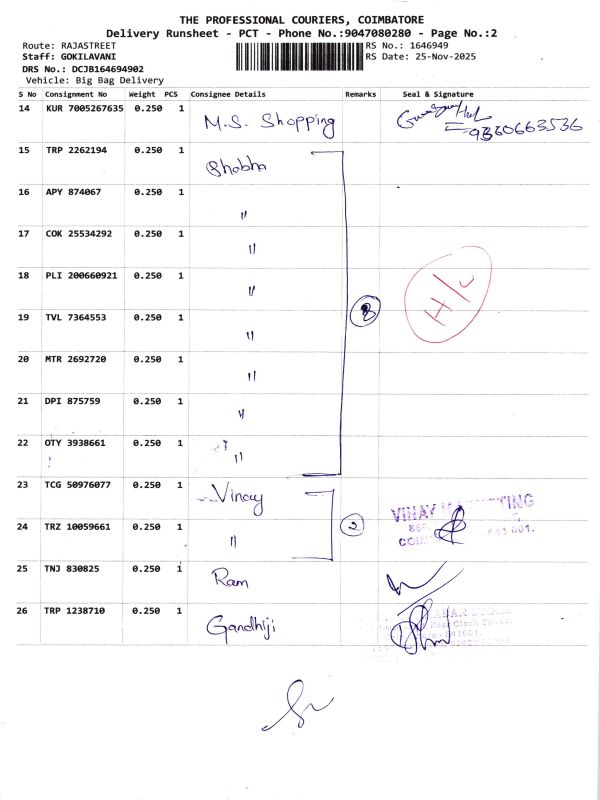 THE PROFESSIONAL COURIERS, COIMBATORE
Delivery Runsheet - PCT - Phone No.:9047080280 - Page No.:2
Route: RAJASTREET
RS No.: 1646949
Staff: GOKILAVANI
RS Date: 25-Nov-2025
DRS No.: DCJB164694902
Vehicle: Big Bag Delivery
S No Consignment No Weight PCS Consignee Details Remarks Seal & Signature
14 KUR 7005267635 0.250 1 M.S. Shopping 9360663536
15 TRP 2262194 0.250 1 Shobha
16 APY 874067 0.250 1 "
17 COK 25534292 0.250 1 "
18 PLI 200660921 0.250 1 " H/C
19 TVL 7364553 0.250 1 " 8
20 MTR 2692720 0.250 1 "
21 DPI 875759 0.250 1 "
22 OTY 3938661 0.250 1 "
23 TCG 50976077 0.250 1 Vinay VINAY
24 TRZ 10059661 0.250 1 " 2
25 TNJ 830825 0.250 1 Ram
26 TRP 1238710 0.250 1 Gandhiji